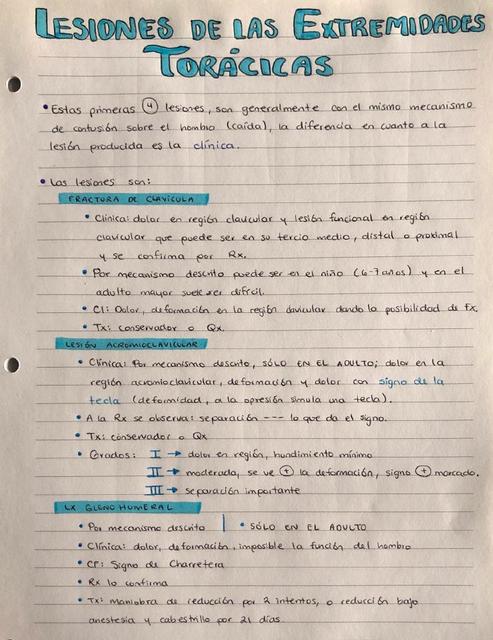 LESIONES DE LAS EXTREMIDADES
TORÁCICAS
• Estas primeras 4 lesiones, son generalmente con el mismo mecanismo
de contusión sobre el hombro (caída), la diferencia en cuanto a la
lesión producida es la clínica.
• Las lesiones son:
FRACTURA DE CLAVÍCULA
• Clínica: dolor en región clavicular y lesión funcional en región
clavicular que puede ser en su tercio medio, distal o proximal
y se confirma por Rx.
• Por mecanismo descrito puede ser en el niño (6-7 años) y en el
adulto mayor suele ser difícil.
• Cl: Dolor, deformación en la región clavicular dando la posibilidad de fx.
• Tx: conservador o Qx.
LESIÓN ACROMIOCLAVICULAR
• Clínica: Por mecanismo descrito, SÓLO EN EL ADULTO; dolor en la
región acromioclavicular, deformación y dolor con signo de la
tecla (deformidad, a la opresión simula una tecla).
• A la Rx se observa: separación --- lo que da el signo.
• Tx: conservador o Qx
• Grados: I → dolor en región, hundimiento mínimo
II → moderada, se ve + la deformación, signo + marcado.
III → separación importante
LX GLENOHUMERAL
• Por mecanismo descrito | • SÓLO EN EL ADULTO
• Clínica: dolor, deformación, imposible la función del hombro
• CP: Signo de Charretera
• Rx lo confirma
• Tx: Maniobra de reducción por 2 intentos, o reducción bajo
anestesia y cabestrillo por 21 días.